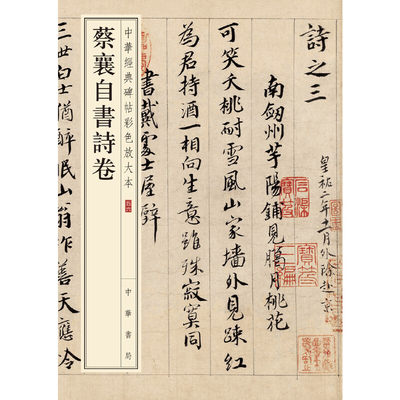 詩之三
皇祐二年十一月外除赴京
南劔州芋陽鋪見臘月桃花
可笑夭桃耐雪風山家墻外見踈紅
為君持酒一相向生意雖殊寂寞同
書戴處士屋壁
中華經典碑帖彩色放大本
蔡襄自書詩卷
中華書局
三世白士猶醉眠山翁作善天應泠